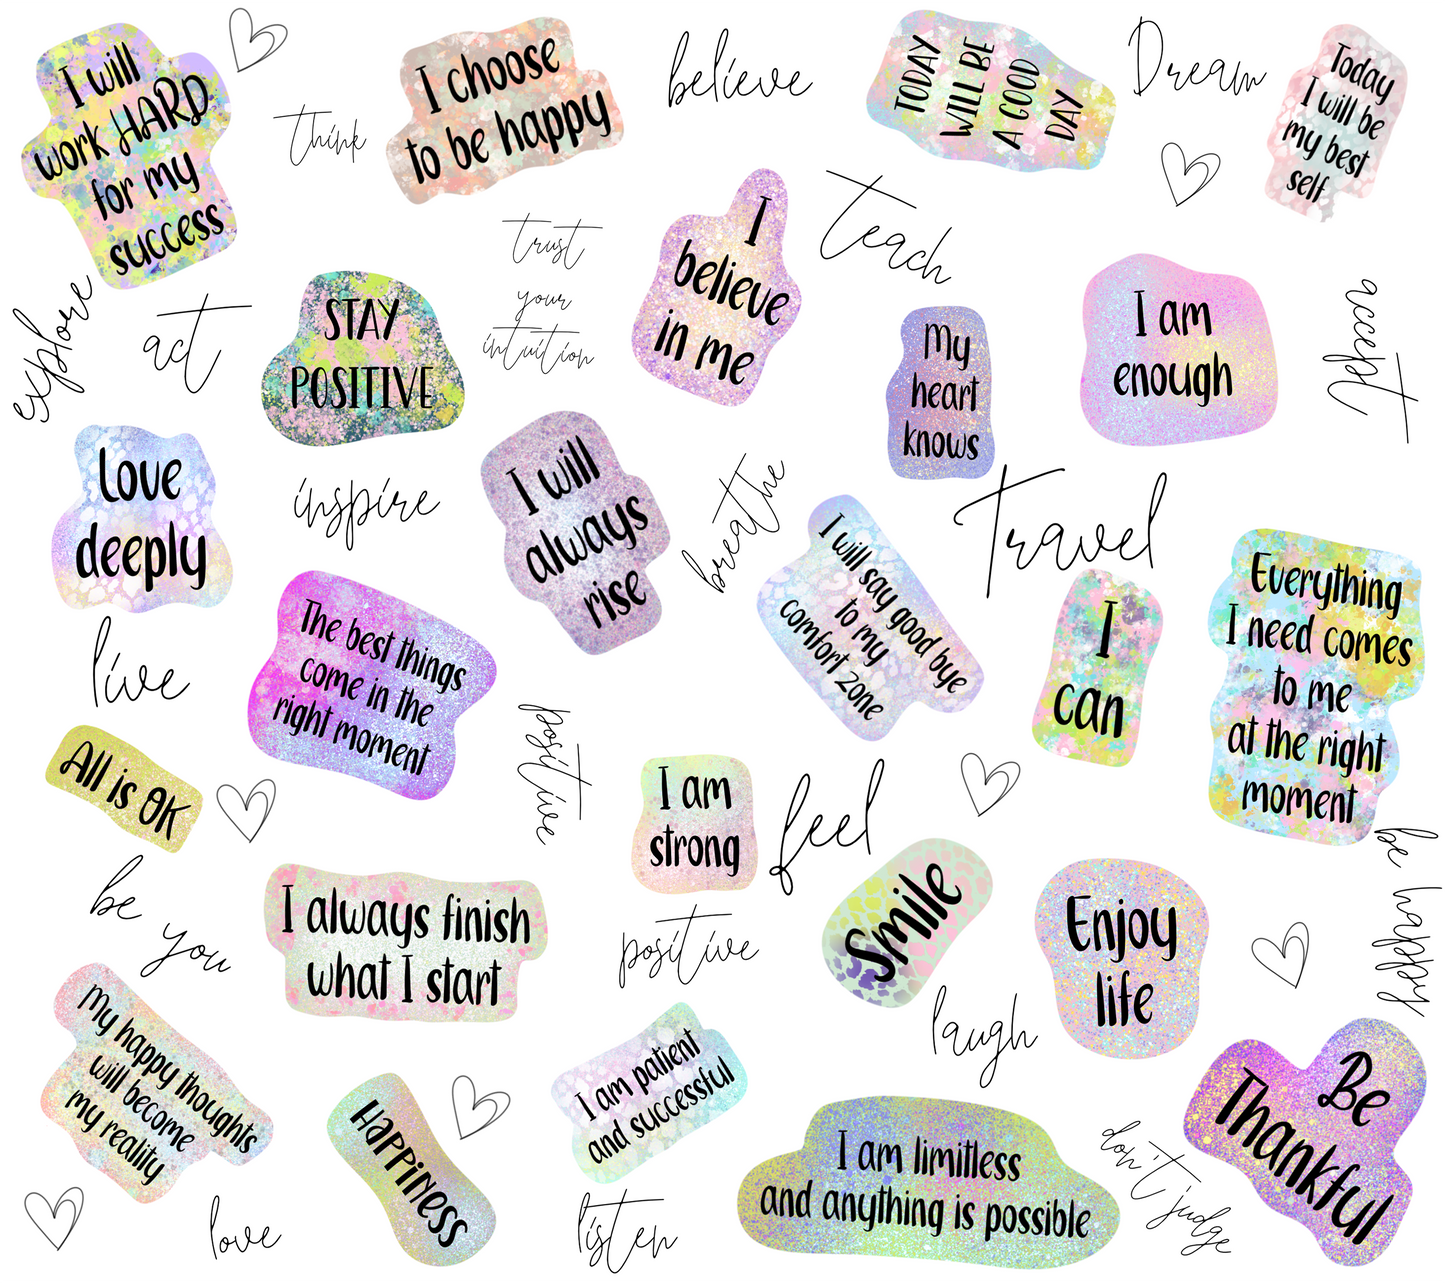 I will
work HARD
for my
success
think
I choose
to be happy
believe
TODAY
WILL BE
A GOOD
DAY
Dream
Today
I will be
my best
self
explore
act
STAY
POSITIVE
trust
your
intuition
I
believe
in me
teach
My
heart
knows
I am
enough
accept
Love
deeply
inspire
I will
always
rise
breathe
travel
live
The best things
come in the
right moment
positive
I will say good bye
to my
comfort zone
I
can
Everything
I need comes
to me
at the right
moment
All is OK
I am
strong
feel
be you
I always finish
what I start
positive
Smile
laugh
Enjoy
life
be happy
My happy thoughts
will become
my reality
love
HAPPINESS
I am patient
and successful
listen
I am limitless
and anything is possible
don't judge
Be
Thankful